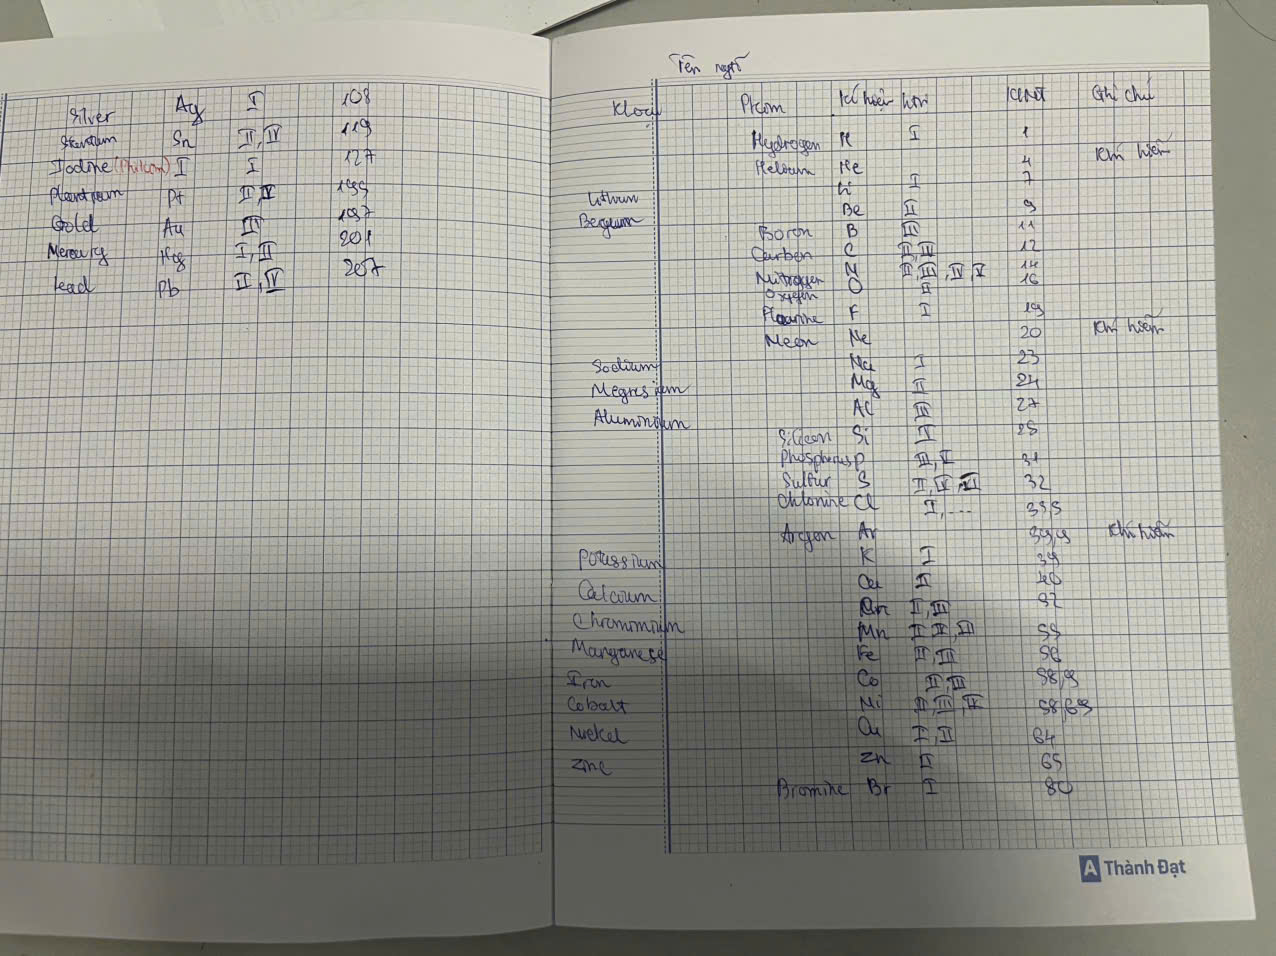 Silver Ag I 108
Sn II, IV 119
Iodine (Phi kim) I I 127
Pt II, IV 195
Gold Au III 197
Mercury Hg I, II 201
Lead Pb II, IV 207
Tên ngtố
Kloại Pkim Kí hiệu htrị KLNT Ghi chú
Hydrogen H I 1
Helium He 4 Khí hiếm
Lithium Li I 7
Be II 9
Boron B III 11
Carbon C II, IV 12
Nitrogen N II, III, IV, V 14
Oxygen O II 16
Flourine F I 19
Neon Ne 20 Khí hiếm
Sodium Na I 23
Megnesium Mg II 24
Aluminium Al III 27
Silicon Si IV 28
Phosphorus P III, V 31
Sulfur S II, IV, VI 32
Chlorine Cl I, ... 35,5
Argon Ar 39,9 Khí hiếm
Potassium K I 39
Calcium Ca II 40
Chrommium II, III 52
Manganese Mn II IV, VII 55
Iron Fe II, III 56
Cobalt Co II, III 58,9
Nickel Ni II, III, IV 58,69
Cu I, II 64
Zinc Zn II 65
Bromine Br I 80
A Thành Đạt